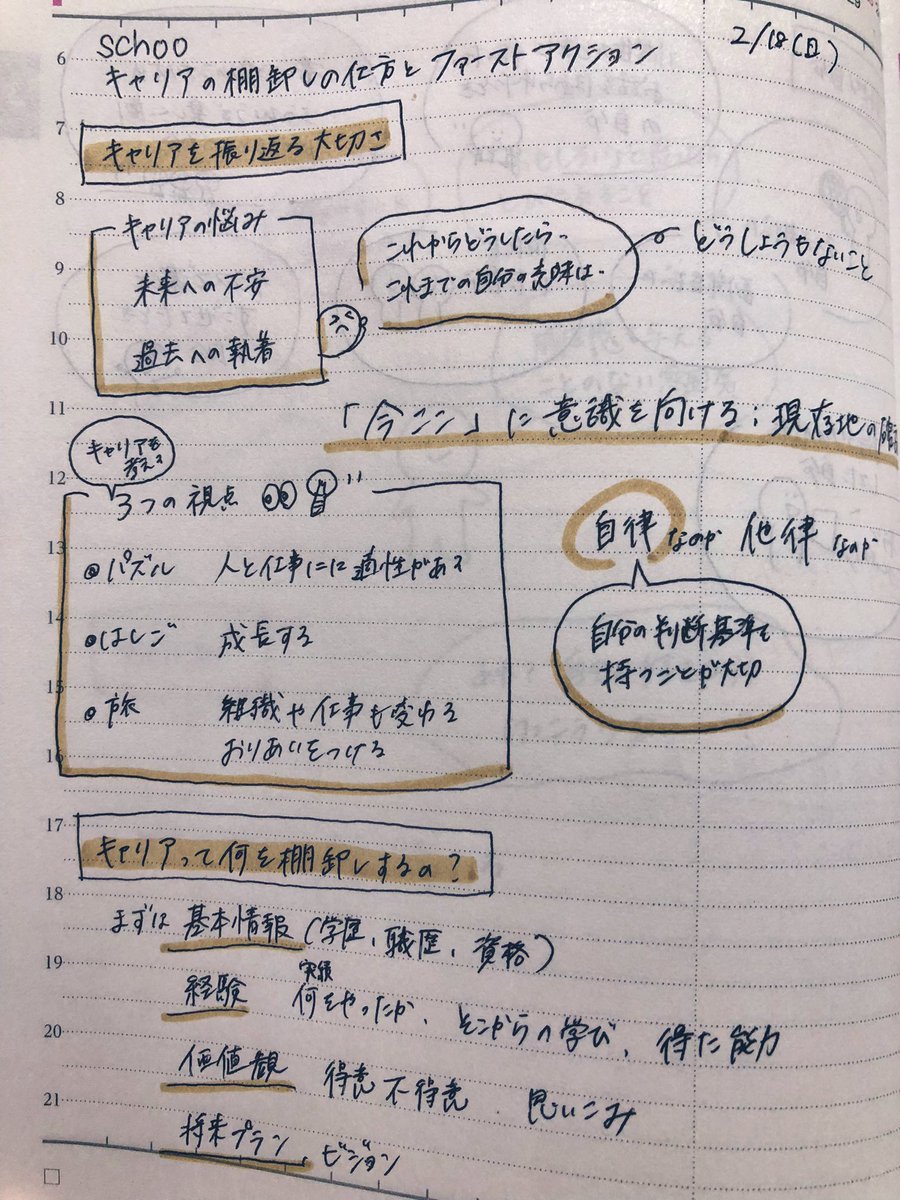 schoo
2/18(日)
キャリアの棚卸しの仕方とファーストアクション
キャリアを振り返る大切さ
キャリアの悩み
未来への不安
過去への執着
これからどうしたら、
これまでの自分の意味は…
どうしようもないこと
「今ここ」に意識を向ける；現在地の確認
キャリアを
考える
3つの視点
パズル 人と仕事にに適性がある
はしご 成長する
旅 組織や仕事も変わる
おりあいをつける
自律なのか 他律なのか
自分の判断基準を
持つことが大切
キャリアって何を棚卸しするの？
まずは 基本情報 (学歴、職歴、資格)
経験 実績 何をやったか、そこからの学び、得た能力
価値観 得意 不得意 、思いこみ
将来プラン、ビジョン
6
7
8
9
10
11
12
13
14
15
16
17
18
19
20
21